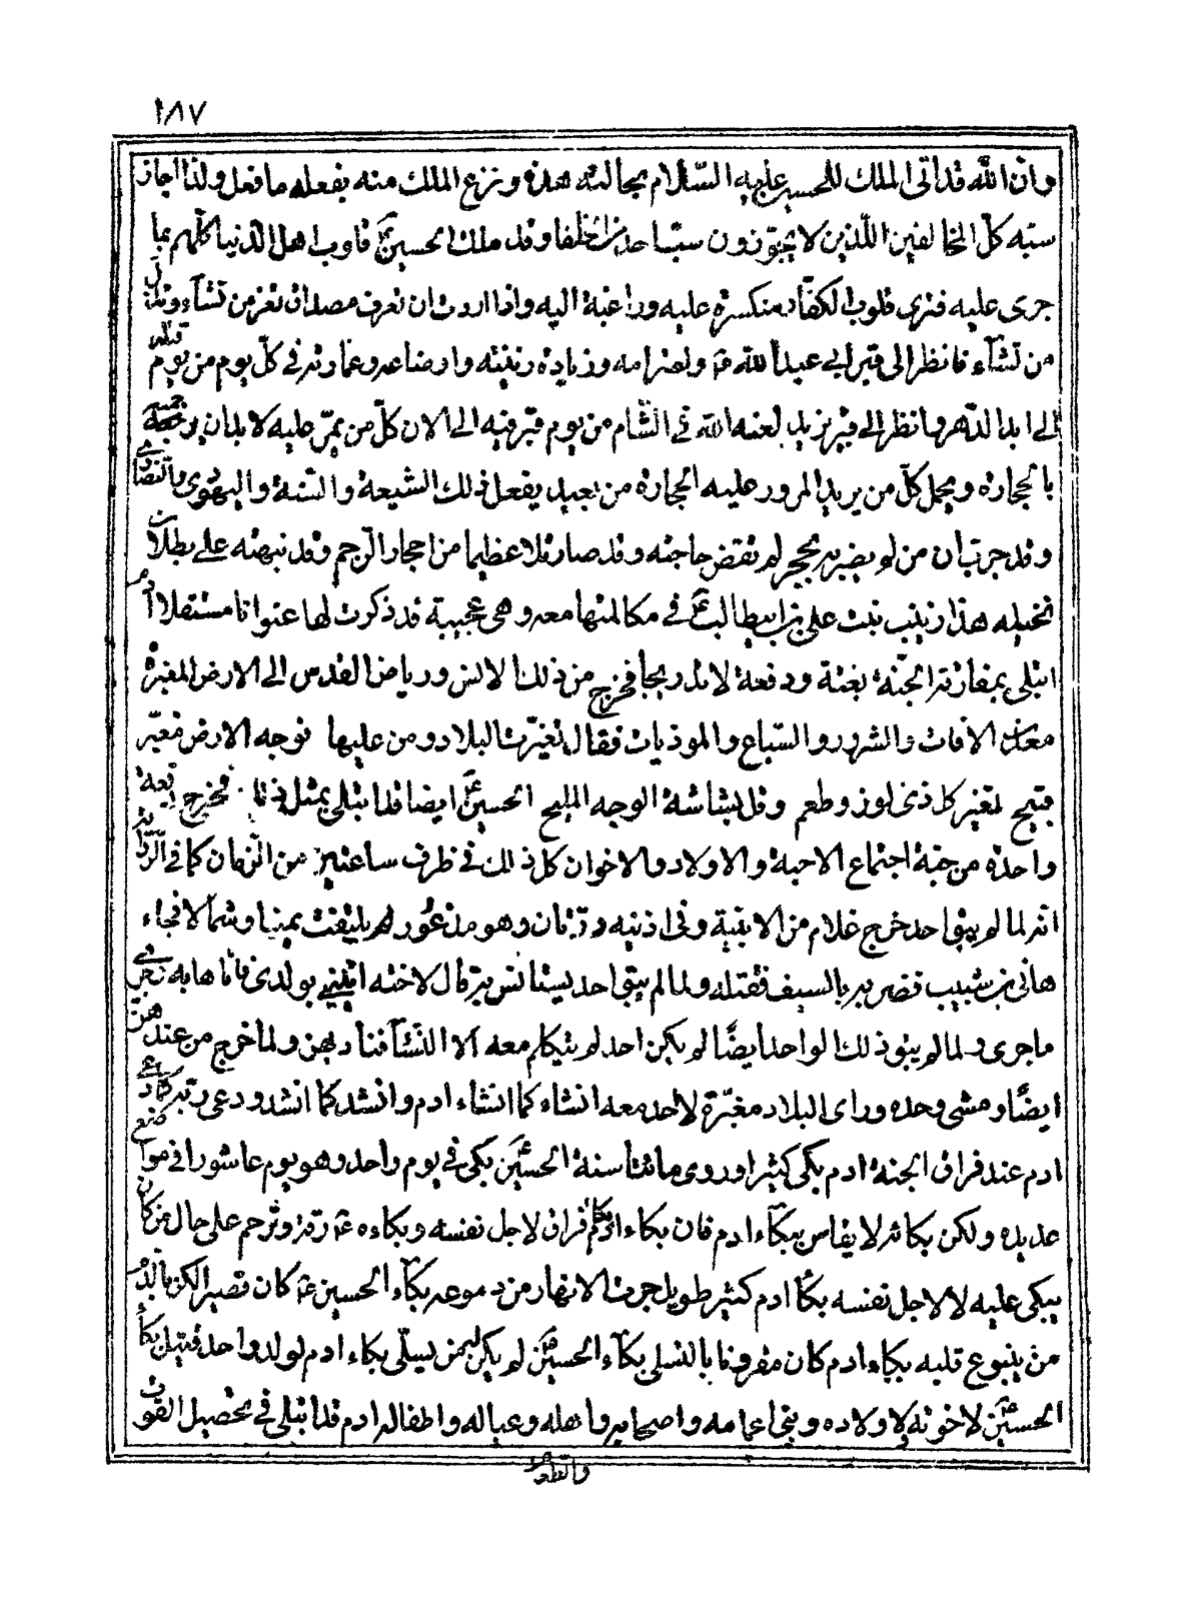 ١٨٧
وان الله قد اتى الملك للحسين عليه السّلام بحالته هذه ونزع الملك منه بفعله ما فعل ولذا اجاز
سبّه كلّ المخالفين اللّذين لا يجوّزون سبّ احد من الخلفا وقد ملك الحسين ع قلوب اهل الدّنيا كلّهم بما
جرى عليه فترى قلوب الكفّار منكسرة عليه وراغبة اليه واذا اردت ان تعرف مصداق تعز من تشآء وتذل
من تشآء فانظر الى قبر ابي عبد الله ع واحترامه وزيادة زينته وارتفاعه وعمارته في كلّ يوم من يوم قتله
الى ابد الدّهر وانظر الى قبر يزيد لعنه الله في الشّام من يوم قبر فيه الى الان كلّ من يمرّ عليه لابد ان يرجمه
بالحجارة ويحمل كلّ من يريد المرور عليه الحجارة من بعيد يفعل ذلك الشيعة والسّنة واليهود والنصارى
وقد جرب ان من لو يضربه بحجر لم تقض حاجته وقد صار تلا عظيما من احجار الرّجم وقد نبهته على بطلان
تخيله هذا زينب بنت علي بن ابيطالب ع في مكالمتها معه وهي عجيبة قد ذكرت لها عنوانا مستقلا ادم
ابتلى بمفارقة الجنّة بغتة ودفعة لا تدريجا فخرج من ذلك الانس ورياض القدس الى الارض المغبرة
معدن الافات والشرور والسّباع والموذيات فقال تغيّرت البلاد ومن عليها فوجه الارض مغبّر
قبيح تغير كل ذى لون وطعم وقل بشاشة الوجه المليح الحسين ع ايضا قد ابتلى بمثل ذلك فخرج دفعة
واحدة من جنة اجتماع الاحبة والاولاد والاخوان كل ذلك في ظرف ساعتين من الزمان كما في الرّواية
انّه لما لم يبق احد خرج غلام من الابنية وفى اذنيه درّتان وهو مذعُور لم يلتفت يمينا وشمالا فجاء
هانى بن شبيب فضربه بالسيف فقتله ولما لم يبق احد يستانس به قال لاخته ايتيني بولدى فاتاها به فجرى
ما جرى ولما لم يبق ذلك الواحد ايضًا لم يكن احد لم يتكلم معه الا النّسآء فناديهن ولما خرج من عندهنّ
ايضًا ومشى وحده وراى البلاد مغبّرة لا احد معه انشاء كما انشاء ادم وانشد كما انشد ودعى ربه كما دعى
ادم عند فراق الجنة ادم بكى كثيرا وروى مائتا سنة الحسين ع بكى في يوم واحد وهو يوم عاشورا في مواضع
عديدة ولكن بكائه لا يقاس ببكآء ادم فان بكاء ادم بكاء فراق لاجل نفسه وبكاءه ع رقة وترحم على حال من كان
يبكى عليه لا لاجل نفسه بكآء ادم كثير طويل جرت الانهار من دموعه بكآء الحسين ع كان قصيرا لكن بالدّم
من ينبوع قلبه بكاء ادم كان مقرونا بالتسلى بكآء الحسين ع لم يكن لمن يسلّى بكاء ادم لولد واحد قتيل بكآء
الحسين ع لاخوته ولاولاده وبنى اعمامه واصحابه واهله وعياله واطفاله ادم قد ابتلى في تحصيل القوت